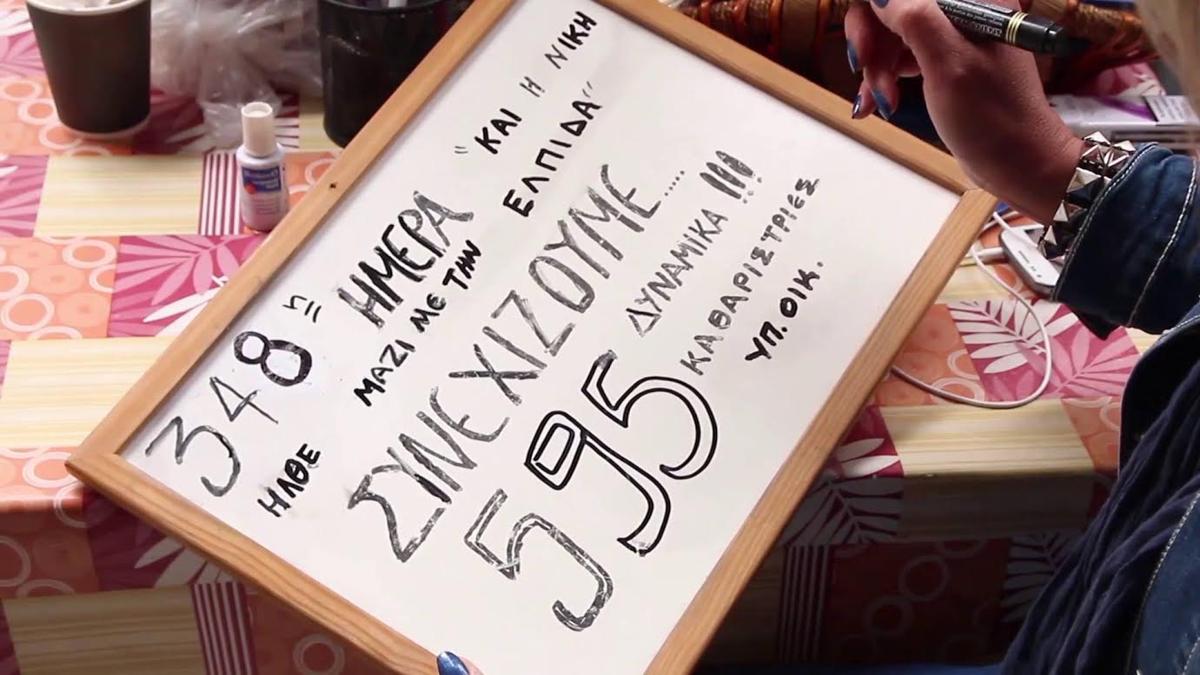 348η ΗΜΕΡΑ "ΚΑΙ Η ΝΙΚΗ
ΗΛΘΕ ΜΑΖΙ ΜΕ ΤΗΝ ΕΛΠΙΔΑ"
ΣΥΝΕΧΙΖΟΥΜΕ......
ΔΥΝΑΜΙΚΑ !!!
595 ΚΑΘΑΡΙΣΤΡΙΕΣ
ΥΠ. ΟΙΚ.